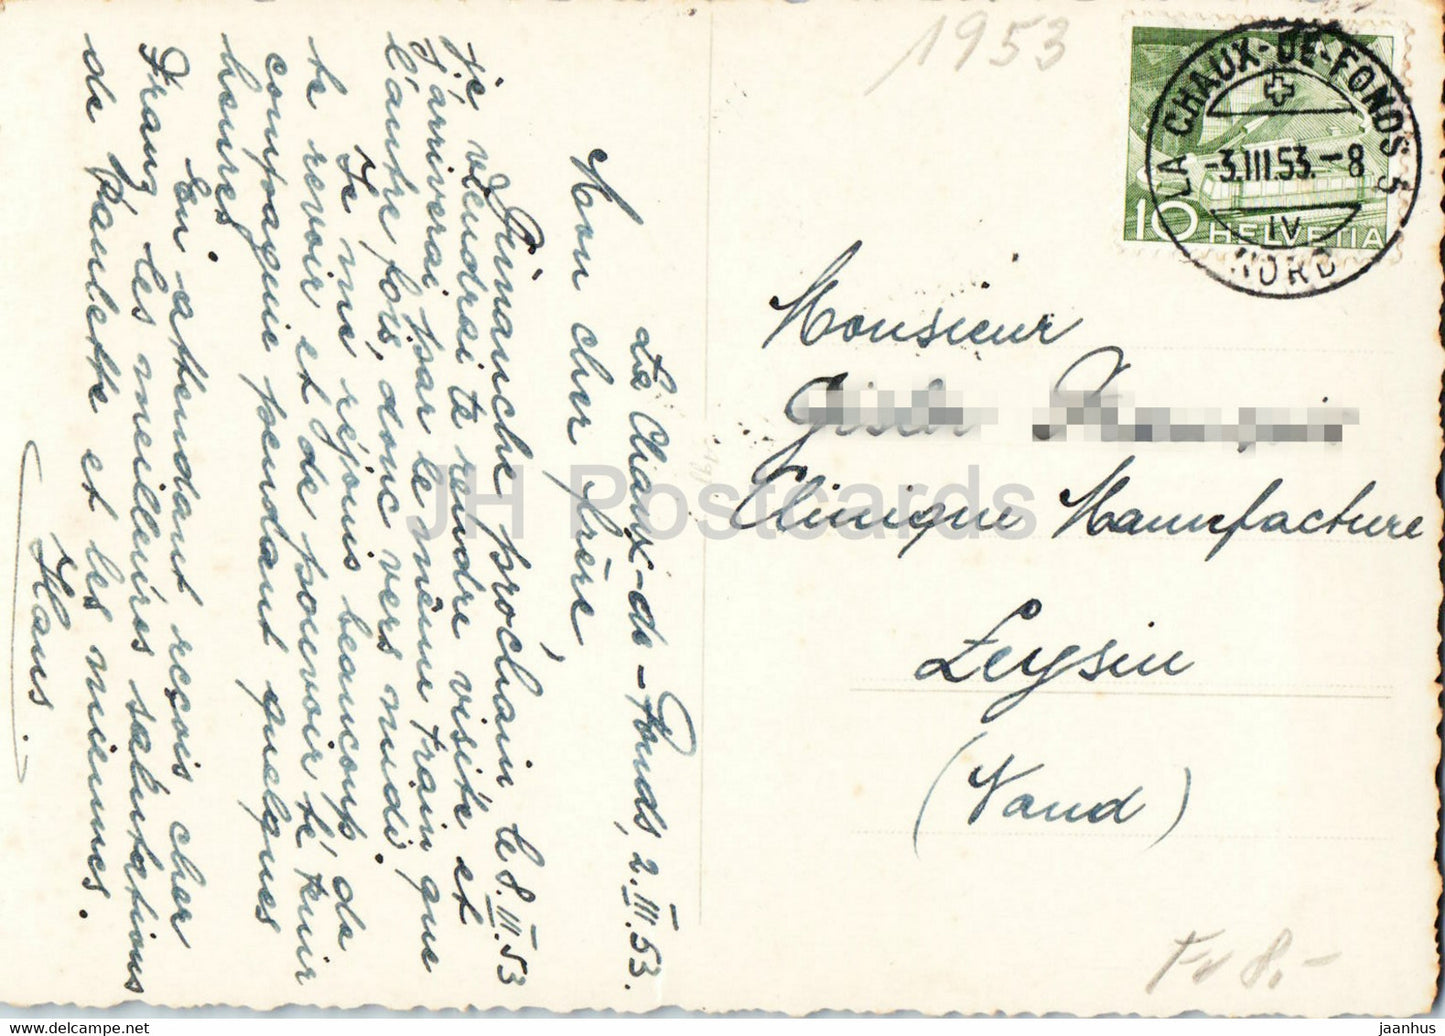 1953
LA CHAUX-DE-FONDS 5
-3.III.53.-8
IV
NORD
10 HELVETIA
La Chaux-de-Fonds, 2.III.53.
Mon cher frère,
Dimanche prochain le 8.III.53
je viendrai te rendre visite et
j'arriverai par le même train que
l'autre fois, donc vers midi.
Je me réjouis beaucoup de
te revoir et de pouvoir te tenir
compagnie pendant quelques
heures.
En attendant reçois cher
Franz les meilleures salutations
de Paulette et les miennes.
Hans.
Monsieur
Clinique Manufacture
Leysin
(Vaud)
Fr 8.-
JH Postcards
hippostcard.com
jaanhus